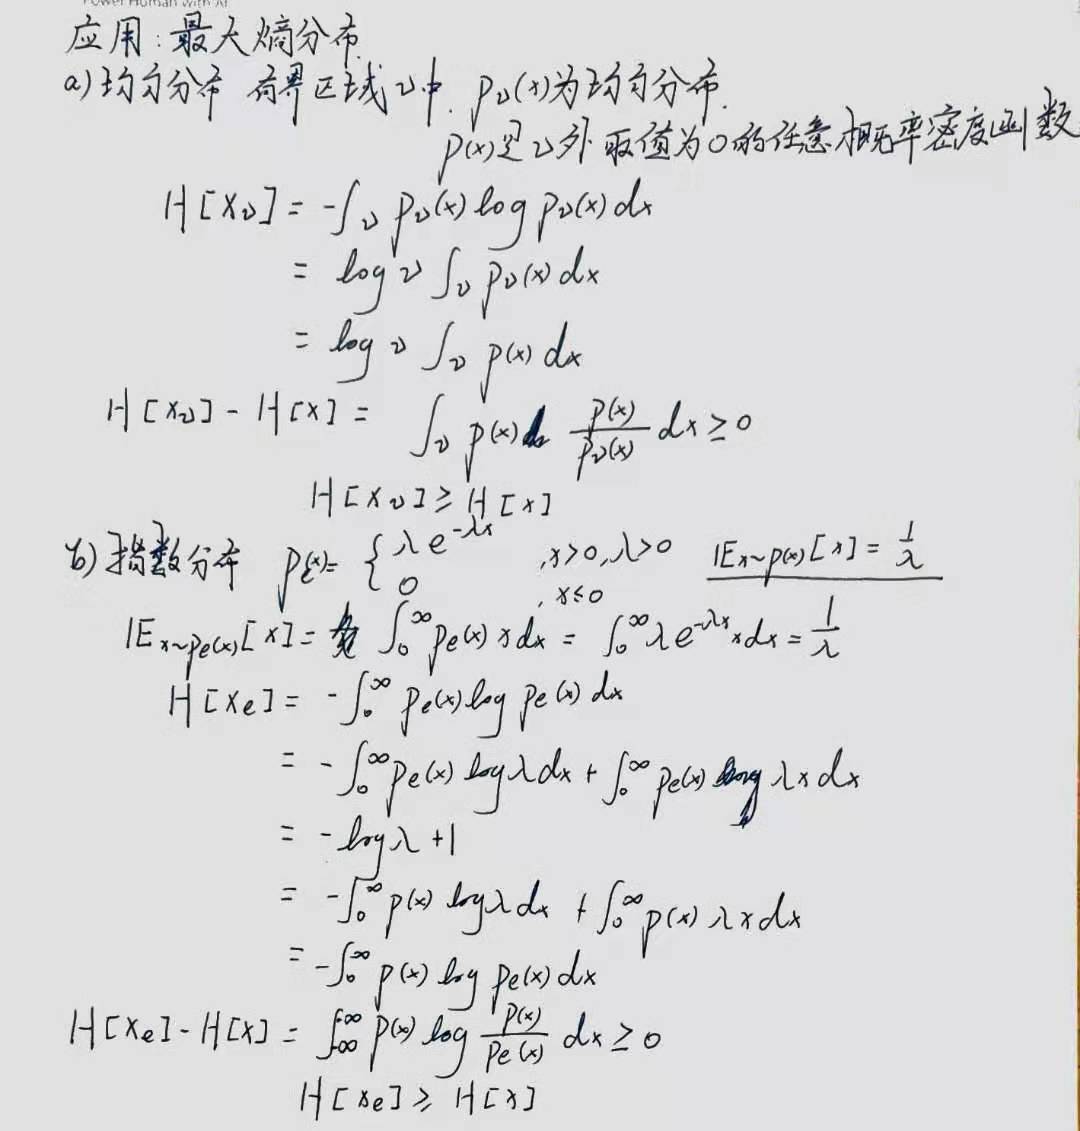 Power Human with AI
应用:最大熵分布
a) 均匀分布 有界区域ν中. pν(x)为均匀分布.
p(x)是ν外取值为0的任意概率密度函数
H[Xν] = -∫ν pν(x) log pν(x) dx
= log ν ∫ν pν(x) dx
= log ν ∫ν p(x) dx
H[Xν] - H[X] = ∫ν p(x) p(x)/pν(x) dx ≥ 0
H[Xν] ≥ H[X]
b) 指数分布 pe(x) = { λe^{-λx} , x>0, λ>0 𝔼x~p(x)[x] = 1/λ
0 , x≤0
𝔼x~pe(x)[x] = ∫₀^∞ pe(x) x dx = ∫₀^∞ λe^{-λx} x dx = 1/λ
H[Xe] = -∫₀^∞ pe(x) log pe(x) dx
= -∫₀^∞ pe(x) log λ dx + ∫₀^∞ pe(x) λx dx
= -log λ + 1
= -∫₀^∞ p(x) log λ dx + ∫₀^∞ p(x) λx dx
= -∫₀^∞ p(x) log pe(x) dx
H[Xe] - H[X] = ∫_{-∞}^{∞} p(x) log p(x)/pe(x) dx ≥ 0
H[Xe] ≥ H[X]